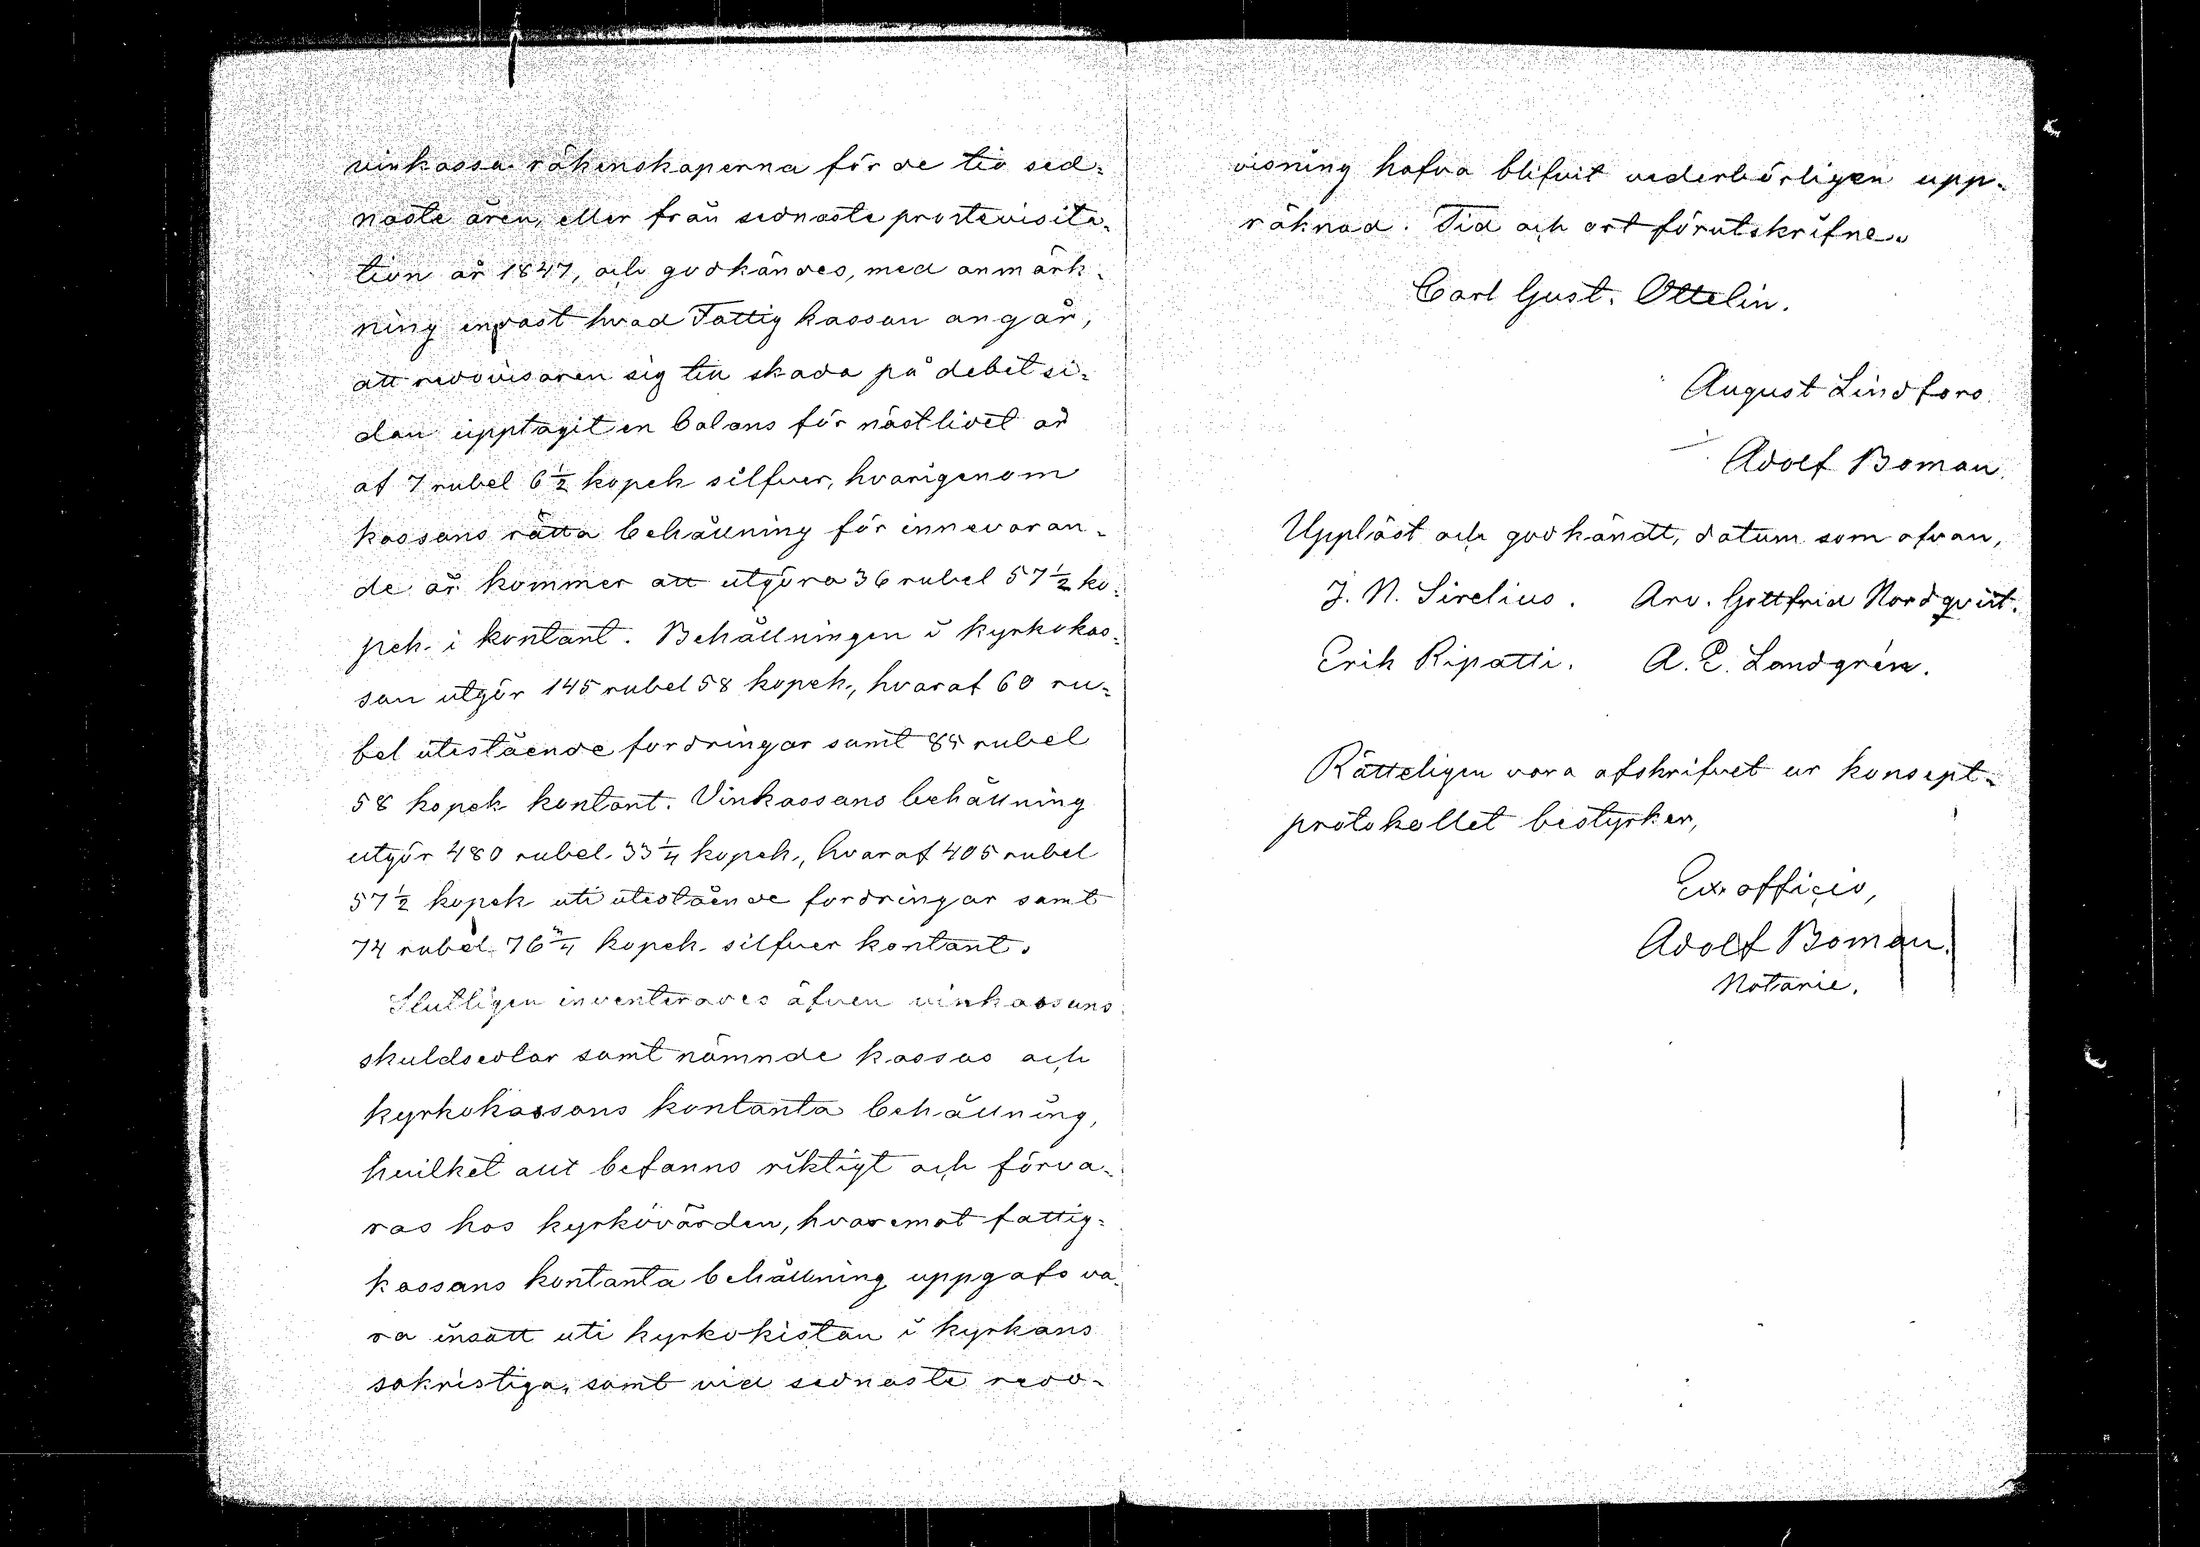 vinkassa räkenskaperna för de tio sed-
naste åren, eller från sednaste prostevisita-
tion år 1847, och godkändes, med anmärk-
ning endast hvad Fattig kassan angår,
att redovisaren sig till skada på debetsi-
dan upptagit en balans för nästlidet år
af 7 rubel 6 1/2 kopek silfver, hvarigenom
kassans rätta behållning för innevaran-
de år kommer att utgöra 36 rubel 57 1/2 ko-
pek i kontant. Behållningen i kyrkokas-
san utgör 145 rubel 58 kopek, hvaraf 60 ru-
bel utestående fordringar samt 85 rubel
58 kopek kontant. Vinkassans behållning
utgör 480 rubel 33 1/4 kopek, hvaraf 405 rubel
57 1/2 kopek uti utestående fordringar samt
74 rubel 76 3/4 kopek silfver kontant.
Slutligen inventerades äfven vinkassans
skuldsedlar samt nämnde kassas och
kyrkokassans kontanta behållning,
hvilket allt befanns riktigt och förva-
ras hos kyrkövärden, hvaremot fattig-
kassans kontanta behållning uppgafs va-
ra insatt uti kyrkokistan i kyrkans
sakristiga, samt vid sednaste redo-
visning hafva blifvit vederbörligen upp-
räknad. Tid och ort förutskrifne.
Carl Gust. Ottelin.
August Lindfors.
Adolf Boman.
Uppläst och godkändt, datum som ofvan,
J. N. Sirelius. Arv. Gottfrid Nordqvist.
Erik Ripatti. A. E. Landgrén.
Rätteligen vara afskrifvet ur konsept-
protokollet bestyrker,
Ex officio,
Adolf Boman.
Notarie.